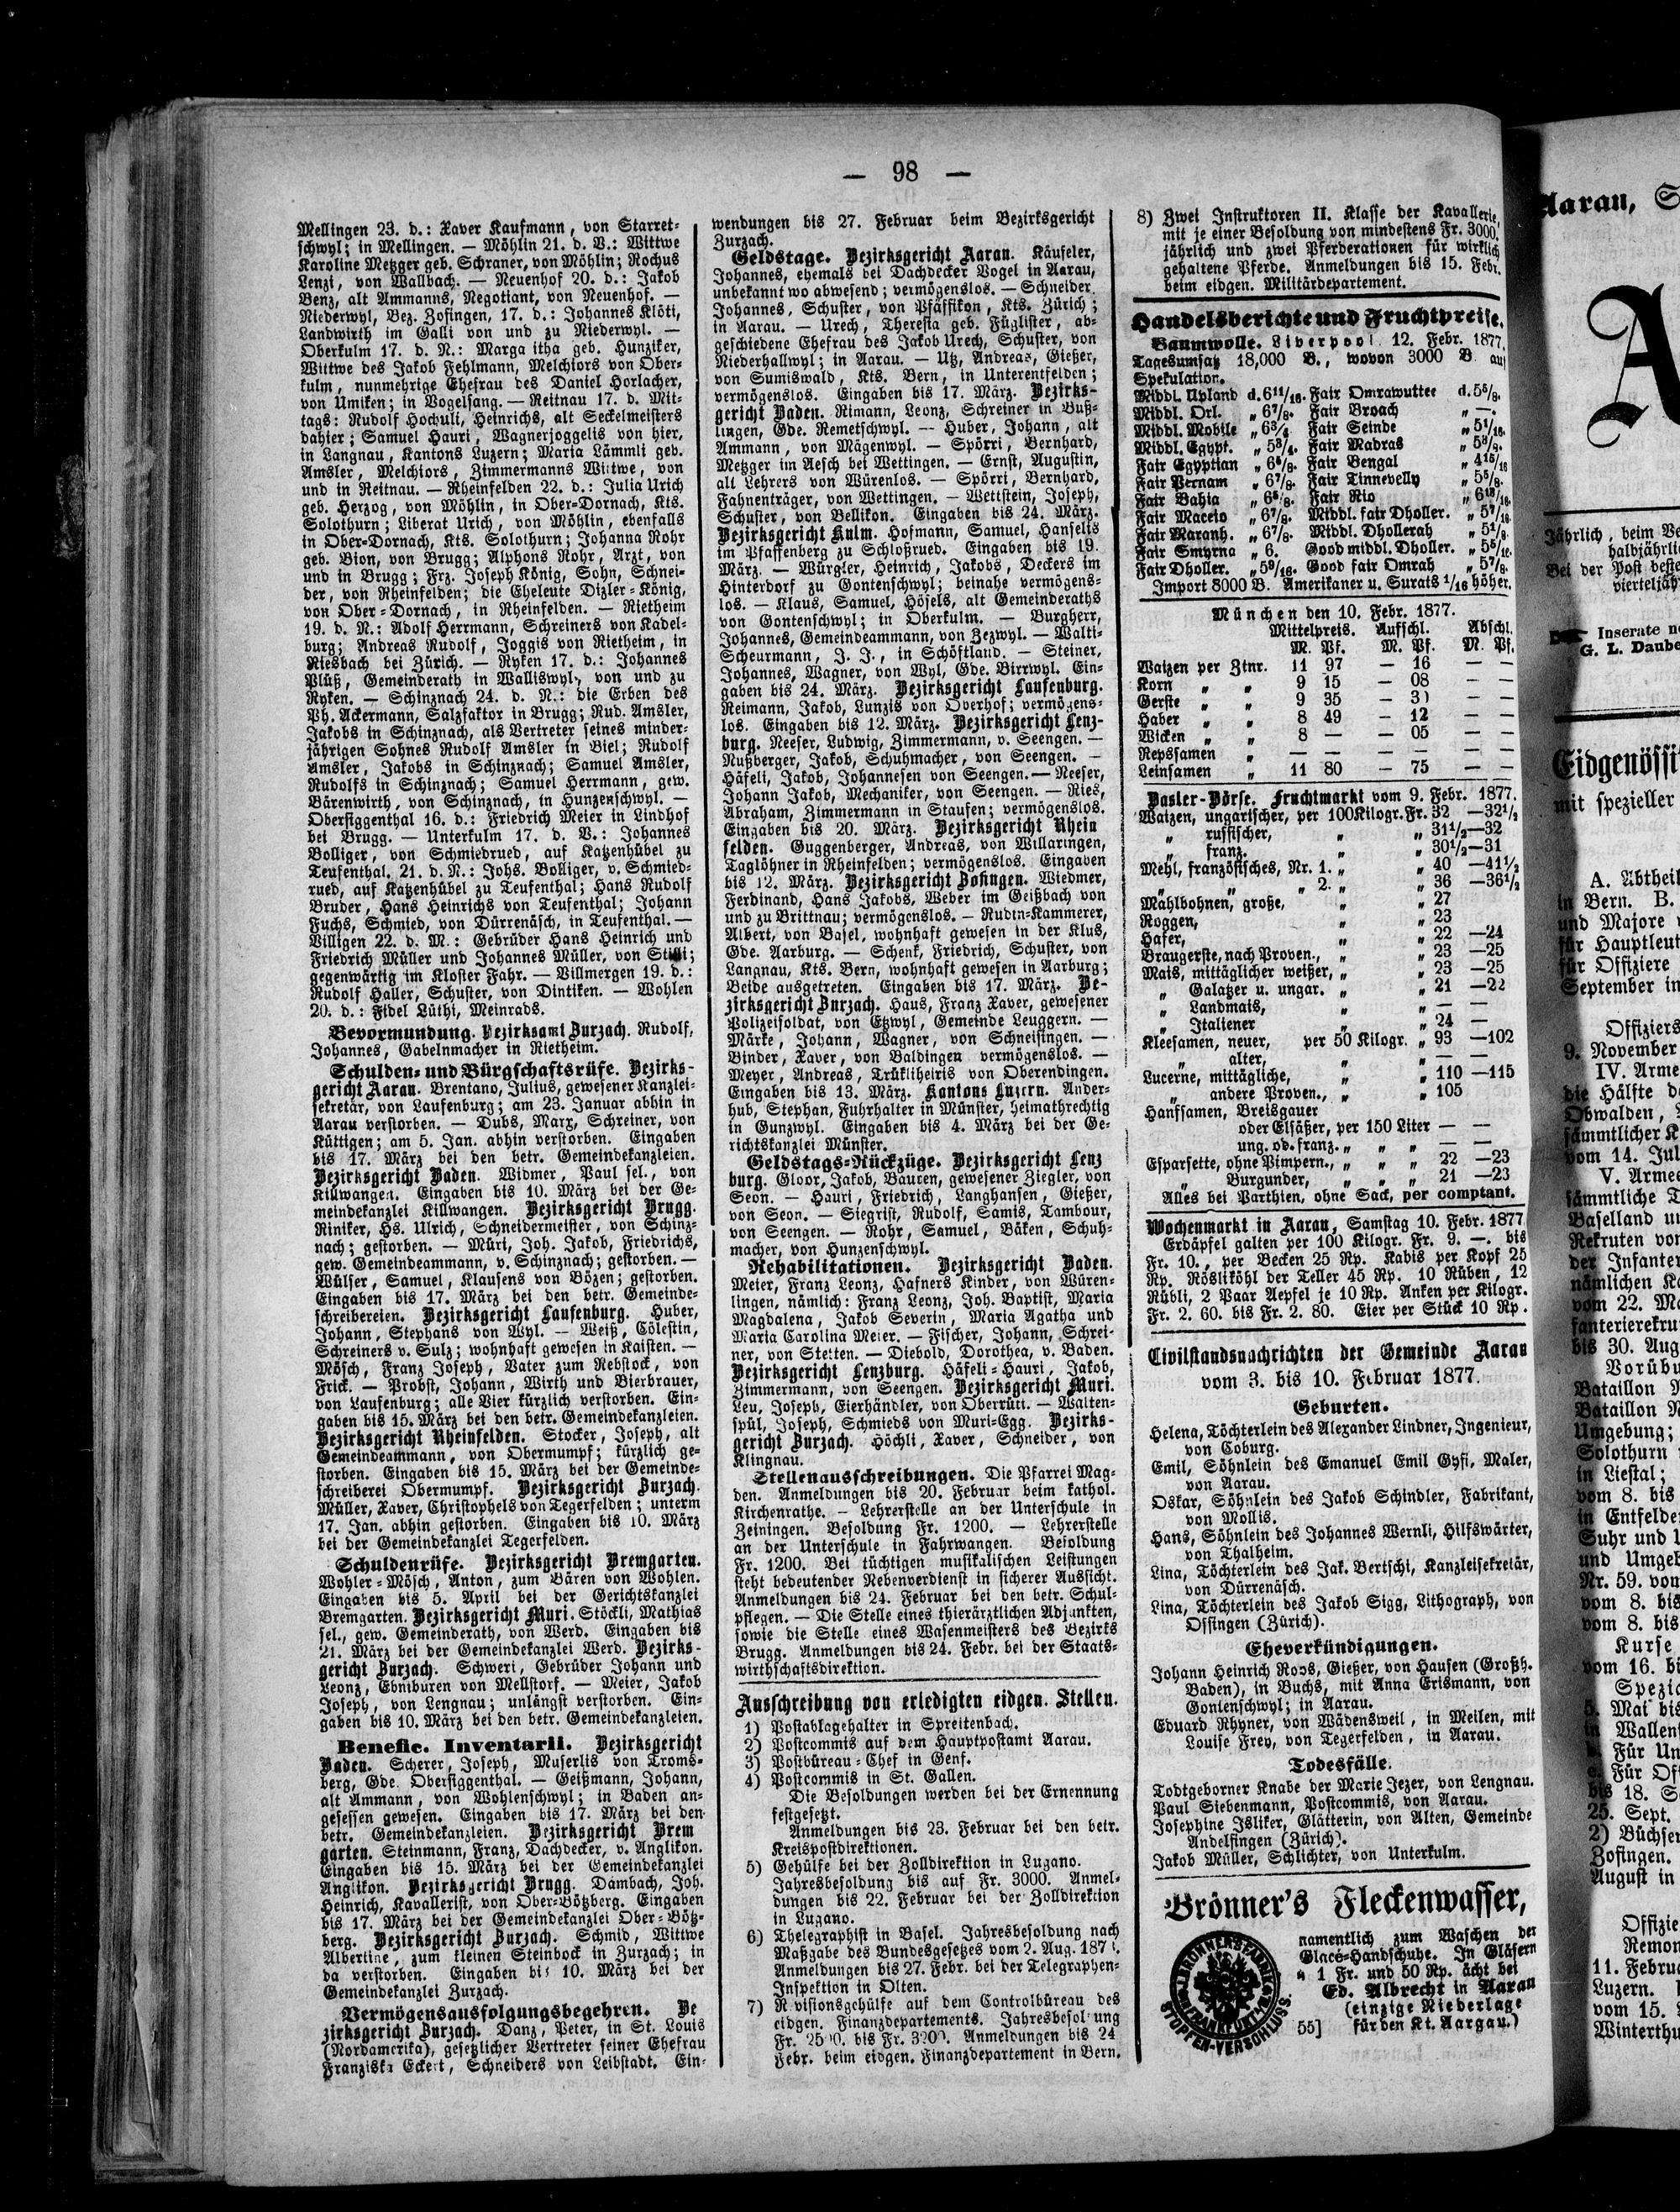 — 98 —
Mellingen 23. d.: Xaver Kaufmann, von Starret-
schwyl; in Mellingen. — Möhlin 21. d. V.: Wittwe
Karoline Metzger geb. Schraner, von Möhlin; Rochus
Lenzi, von Wallbach. — Neuenhof 20. d.: Jakob
Benz, alt Ammanns, Negotiant, von Neuenhof. —
Niederwyl, Bez. Zofingen, 17. d.: Johannes Klöti,
Landwirth im Galli von und zu Niederwyl. —
Oberkulm 17. d. N.: Marga itha geb. Hunziker,
Wittwe des Jakob Fehlmann, Melchiors von Ober-
kulm, nunmehrige Ehefrau des Daniel Horlacher,
von Umiken; in Vogelsang. — Reitnau 17. d. Mit-
tags: Rudolf Hochuli, Heinrichs, alt Seckelmeisters
dahier; Samuel Hauri, Wagnerjoggelis von hier,
in Langnau, Kantons Luzern; Maria Lämmli geb.
Amsler, Melchiors, Zimmermanns Wittwe, von
und in Reitnau. — Rheinfelden 22. d.: Julia Urich
geb. Herzog, von Möhlin, in Ober-Dornach, Kts.
Solothurn; Liberat Urich, von Möhlin, ebenfalls
in Ober-Dornach, Kts. Solothurn; Johanna Rohr
geb. Bion, von Brugg; Alphons Rohr, Arzt, von
und in Brugg; Frz. Joseph König, Sohn, Schnei-
der, von Rheinfelden; die Eheleute Dizler-König,
von Ober-Dornach, in Rheinfelden. — Rietheim
19. d. N.: Adolf Herrmann, Schreiners von Kadel-
burg; Andreas Rudolf, Joggis von Rietheim, in
Riesbach bei Zürich. — Ryken 17. d.: Johannes
Plüß, Gemeinderath in Walliswyl, von und zu
Ryken. — Schinznach 24. d. N.: die Erben des
Ph. Ackermann, Salzfaktor in Brugg; Rud. Amsler,
Jakobs in Schinznach, als Vertreter seines minder-
jährigen Sohnes Rudolf Amsler in Biel; Rudolf
Amsler, Jakobs in Schinznach; Samuel Amsler,
Rudolfs in Schinznach; Samuel Herrmann, gew.
Bärenwirth, von Schinznach, in Hunzenschwyl. —
Obersiggenthal 16. d.: Friedrich Meier in Lindhof
bei Brugg. — Unterkulm 17. d. V.: Johannes
Bolliger, von Schmiedrued, auf Katzenhübel zu
Teufenthal. 21. d. N.: Johs. Bolliger, v. Schmied-
rued, auf Katzenhübel zu Teufenthal; Hans Rudolf
Bruder, Hans Heinrichs von Teufenthal; Johann
Fuchs, Schmied, von Dürrenäsch, in Teufenthal. —
Villigen 22. d. M.: Gebrüder Hans Heinrich und
Friedrich Müller und Johannes Müller, von Stilli;
gegenwärtig im Kloster Fahr. — Villmergen 19. d.:
Rudolf Haller, Schuster, von Dintiken. — Wohlen
20. d.: Fidel Lüthi, Meinrads.
Bevormundung. Bezirksamt Zurzach. Rudolf,
Johannes, Gabelnmacher in Rietheim.
Schulden- und Bürgschaftsrüfe. Bezirks-
gericht Aarau. Brentano, Julius, gewesener Kanzlei-
sekretär, von Laufenburg; am 23. Januar abhin in
Aarau verstorben. — Dubs, Marx, Schreiner, von
Küttigen; am 5. Jan. abhin verstorben. Eingaben
bis 17. März bei den betr. Gemeindekanzleien.
Bezirksgericht Baden. Widmer, Paul sel., von
Killwangen. Eingaben bis 10. März bei der Ge-
meindekanzlei Killwangen. Bezirksgericht Brugg.
Riniker, Hs. Ulrich, Schneidermeister, von Schinz-
nach; gestorben. — Müri, Joh. Jakob, Friedrichs,
gew. Gemeindeammann, v. Schinznach; gestorben. —
Wülser, Samuel, Klausens von Bözen; gestorben.
Eingaben bis 17. März bei den betr. Gemeinde-
schreibereien. Bezirksgericht Laufenburg. Huber,
Johann, Stephans von Wyl. — Weiß, Cölestin,
Schreiners v. Sulz; wohnhaft gewesen in Kaisten. —
Mösch, Franz Joseph, Vater zum Rebstock, von
Frick. — Probst, Johann, Wirth und Bierbrauer,
von Laufenburg; alle Vier kürzlich verstorben. Ein-
gaben bis 15. März bei den betr. Gemeindekanzleien.
Bezirksgericht Rheinfelden. Stocker, Joseph, alt
Gemeindeammann, von Obermumpf; kürzlich ge-
storben. Eingaben bis 15. März bei der Gemeinde-
schreiberei Obermumpf. Bezirksgericht Zurzach.
Müller, Xaver, Christophels von Tegerfelden; unterm
17. Jan. abhin gestorben. Eingaben bis 10. März
bei der Gemeindekanzlei Tegerfelden.
Schuldenrüfe. Bezirksgericht Bremgarten.
Wohler-Mösch, Anton, zum Bären von Wohlen.
Eingaben bis 5. April bei der Gerichtskanzlei
Bremgarten. Bezirksgericht Muri. Stöckli, Mathias
sel., gew. Gemeinderath, von Werd. Eingaben bis
21. März bei der Gemeindekanzlei Werd. Bezirks-
gericht Zurzach. Schweri, Gebrüder Johann und
Leonz, Ebniburen von Mellstorf. — Meier, Jakob
Joseph, von Lengnau; unlängst verstorben. Ein-
gaben bis 10. März bei den betr. Gemeindekanzleien.
Benefic. Inventarii. Bezirksgericht
Baden. Scherer, Joseph, Muserlis von Troms-
berg, Gde. Obersiggenthal. — Geißmann, Johann,
alt Ammann, von Wohlenschwyl; in Baden an-
gesessen gewesen. Eingaben bis 17. März bei den
betr. Gemeindekanzleien. Bezirksgericht Brem
garten. Steinmann, Franz, Dachdecker, v. Anglikon.
Eingaben bis 15. März bei der Gemeindekanzlei
Anglikon. Bezirksgericht Brugg. Dambach, Joh.
Heinrich, Kavallerist, von Ober-Bötzberg. Eingaben
bis 17. März bei der Gemeindekanzlei Ober-Bötz-
berg. Bezirksgericht Zurzach. Schmid, Wittwe
Albertine, zum kleinen Steinbock in Zurzach; in
da verstorben. Eingaben bis 10. März bei der
Gemeindekanzlei Zurzach.
Vermögensausfolgungsbegehren. Be
zirksgericht Zurzach. Danz, Peter, in St. Louis
(Nordamerika), gesetzlicher Vertreter seiner Ehefrau
Franziska Eckert, Schneiders von Leibstadt. Ein-
wendungen bis 27. Februar beim Bezirksgericht
Zurzach.
Geldstage. Bezirksgericht Aarau. Käufeler,
Johannes, ehemals bei Dachdecker Vogel in Aarau,
unbekannt wo abwesend; vermögenslos. — Schneider.
Johannes, Schuster, von Pfäffikon, Kts. Zürich;
in Aarau. — Urech, Theresia geb. Füglister, ab-
geschiedene Ehefrau des Jakob Urech, Schuster, von
Niederhallwyl; in Aarau. — Utz, Andreas, Gießer,
von Sumiswald, Kts. Bern, in Unterentfelden;
vermögenslos. Eingaben bis 17. März. Bezirks-
gericht Baden. Rimann, Leonz, Schreiner in Buß-
lingen, Gde. Remetschwyl. — Huber, Johann, alt
Ammann, von Mägenwyl. — Spörri, Bernhard,
Metzger im Aesch bei Wettingen. — Ernst, Augustin,
alt Lehrers von Würenlos. — Spörri, Bernhard,
Fahnenträger, von Wettingen. — Wettstein, Joseph,
Schuster, von Bellikon. Eingaben bis 24. März.
Bezirksgericht Kulm. Hofmann, Samuel, Hanselis
im Pfaffenberg zu Schloßrued. Eingaben bis 19.
März. — Würgler, Heinrich, Jakobs, Deckers im
Hinterdorf zu Gontenschwyl; beinahe vermögens-
los. — Klaus, Samuel, Hösels, alt Gemeinderaths
von Gontenschwyl; in Oberkulm. — Burgherr,
Johannes, Gemeindeammann, von Zezwyl. — Walti-
Scheurmann, J. J., in Schöftland. — Steiner,
Johannes, Wagner, von Wyl, Gde. Birrwyl. Ein-
gaben bis 24. März. Bezirksgericht Laufenburg.
Reimann, Jakob, Lunzis von Oberhof; vermögens-
los. Eingaben bis 12. März. Bezirksgericht Lenz-
burg. Neeser, Ludwig, Zimmermann, v. Seengen. —
Nußberger, Jakob, Schuhmacher, von Seengen. —
Häfeli, Jakob, Johannesen von Seengen. — Neeser,
Johann Jakob, Mechaniker, von Seengen. — Ries,
Abraham, Zimmermann in Staufen; vermögenslos.
Eingaben bis 20. März. Bezirksgericht Rhein
felden. Guggenberger, Andreas, von Willaringen,
Taglöhner in Rheinfelden; vermögenslos. Eingaben
bis 12. März. Bezirksgericht Zofingen. Wiedmer,
Ferdinand, Hans Jakobs, Weber im Geißbach von
und zu Brittnau; vermögenslos. — Rudin-Kammerer,
Albert, von Basel, wohnhaft gewesen in der Klus,
Gde. Aarburg. — Schenk, Friedrich, Schuster, von
Langnau, Kts. Bern, wohnhaft gewesen in Aarburg;
Beide ausgetreten. Eingaben bis 17. März. Be-
zirksgericht Zurzach. Haus, Franz Xaver, gewesener
Polizeisoldat, von Etzwyl, Gemeinde Leuggern. —
Märke, Johann, Wagner, von Schneisingen. —
Binder, Xaver, von Baldingen vermögenslos. —
Meyer, Andreas, Trükliheiris von Oberendingen.
Eingaben bis 13. März. Kantons Luzern. Ander-
hub, Stephan, Fuhrhalter in Münster, heimathrechtig
in Gunzwyl. Eingaben bis 4. März bei der Ge-
richtskanzlei Münster.
Geldstags-Rückzüge. Bezirksgericht Lenz
burg. Gloor, Jakob, Bauren, gewesener Ziegler, von
Seon. — Hauri, Friedrich, Langhansen, Gießer,
von Seon. — Siegrist, Rudolf, Samis, Tambour,
von Seengen. — Rohr, Samuel, Bäken, Schuh-
macher, von Hunzenschwyl.
Rehabilitationen. Bezirksgericht Baden.
Meier, Franz Leonz, Hafners Kinder, von Würen-
lingen, nämlich: Franz Leonz, Joh. Baptist, Maria
Magdalena, Jakob Severin, Maria Agatha und
Maria Carolina Meier. — Fischer, Johann, Schrei-
ner, von Stetten. — Diebold, Dorothea, v. Baden.
Bezirksgericht Lenzburg. Häfeli-Hauri, Jakob,
Zimmermann, von Seengen. Bezirksgericht Muri.
Leu, Joseph, Eierhändler, von Oberrüti. — Walten-
spül, Joseph, Schmieds von Muri-Egg. Bezirks-
gericht Zurzach. Höchli, Xaver, Schneider, von
Klingnau.
Stellenausschreibungen. Die Pfarrei Mag-
den. Anmeldungen bis 20. Februar beim kathol.
Kirchenrathe. — Lehrerstelle an der Unterschule in
Zeiningen. Besoldung Fr. 1200. — Lehrerstelle
an der Unterschule in Fahrwangen. Besoldung
Fr. 1200. Bei tüchtigen musikalischen Leistungen
steht bedeutender Nebenverdienst in sicherer Aussicht.
Anmeldungen bis 24. Februar bei den betr. Schul-
pflegen. — Die Stelle eines thierärztlichen Adjunkten,
sowie die Stelle eines Wasenmeisters des Bezirks
Brugg. Anmeldungen bis 24. Febr. bei der Staats-
wirthschaftsdirektion.
Ausschreibung von erledigten eidgen. Stellen.
1) Postablagehalter in Spreitenbach.
2) Postcommis auf dem Hauptpostamt Aarau.
3) Postbüreau-Chef in Genf.
4) Postcommis in St. Gallen.
Die Besoldungen werden bei der Ernennung
festgesetzt.
Anmeldungen bis 23. Februar bei den betr.
Kreispostdirektionen.
5) Gehülfe bei der Zolldirektion in Lugano.
Jahresbesoldung bis auf Fr. 3000. Anmel-
dungen bis 22. Februar bei der Zolldirektion
in Lugano.
6) Thelegraphist in Basel. Jahresbesoldung nach
Maßgabe des Bundesgesetzes vom 2. Aug. 187
Anmeldungen bis 27. Febr. bei der Telegraphen-
Inspektion in Olten.
7) R visionsgehülfe auf dem Controlbüreau des
eidgen. Finanzdepartements. Jahresbesol ung
Fr. 25 0. bis Fr. 3200. Anmeldungen bis 24
Febr. beim eidgen. Finanzdepartement in Bern.
8) Zwei Instruktoren II. Klasse der Kavallerie,
mit je einer Besoldung von mindestens Fr. 3000.
jährlich und zwei Pferderationen für wirklich
gehaltene Pferde. Anmeldungen bis 15. Febr.
beim eidgen. Militärdepartement.
Handelsberichte und Fruchtpreise.
Baumwolle. Liverpool 12. Febr. 1877.
Tagesumsatz 18,000 B., wovon 3000 B. auf
Spekulation.
Middl. Upland d. 6 11/16. Fair Omrawuttee d. 5 5/8.
Middl. Orl. „ 6 7/8. Fair Broach „ —.
Middl. Mobile „ 6 3/4 Fair Seinde „ 5 1/16.
Middl. Egypt. „ 5 3/4. Fair Madras „ 5 3/8.
Fair Egyptian „ 6 5/8. Fair Bengal „ 4 15/16
Fair Pernam „ 6 7/8. Fair Tinnevelly „ 5 5/8.
Fair Bahia „ 6 5/8. Fair Rio „ 6 13/16.
Fair Maceio „ 6 7/8. Middl. fair Dholler. „ 5 7/16.
Fair Maranh. „ 6 7/8. Middl. Dhollerah „ 5 1/8.
Fair Smyrna „ 6. Good middl. Dholler. „ 5 5/16.
Fair Dholler. „ 5 9/16. Good fair Omrah „ 5 7/8.
Import 8000 B. Amerikaner u. Surats 1/16 höher.
München den 10. Febr. 1877.
Mittelpreis. Aufschl. Abschl.
M. Pf. M. Pf. M. Pf.
Waizen per Ztnr. 11 97 — 16 — —
Korn „ „ 9 15 — 08 — —
Gerste „ „ 9 35 — 3) — —
Haber „ „ 8 49 — 12 — —
Wicken „ „ 8 — — 05 — —
Repssamen „ — — — — — —
Leinsamen „ 11 80 — 75 — —
Basler-Börse. Fruchtmarkt vom 9. Febr. 1877.
Waizen, ungarischer, per 100 Kilogr. Fr. 32 —32 1/2
„ russischer, „ „ 31 1/2—32
„ franz. „ „ 30 1/2—31
Mehl, französisches, Nr. 1. „ „ 40 —41 1/2
„ „ „ 2. „ „ 36 —36 1/2
Mahlbohnen, große, „ „ 27
Roggen, „ „ 23
Hafer, „ „ 22 —24
Braugerste, nach Proven., „ „ 23 —25
Mais, mittäglicher weißer, „ „ 23 —25
„ Galatzer u. ungar. „ „ 21 —22
„ Landmais, „ „ — —
„ Italiener „ „ 24 —
Kleesamen, neuer, per 50 Kilogr. „ 93 —102
„ alter, „ „ — —
Lucerne, mittägliche, „ „ 110 —115
„ andere Proven., „ „ 105
Hanfsamen, Breisgauer
oder Elsäßer, per 150 Liter — —
ung. od. franz. „ „ „ — —
Esparsette, ohne Pimpern., „ „ „ 22 —23
„ Burgunder, „ „ „ 21 —23
Alles bei Parthien, ohne Sack, per comptant.
Wochenmarkt in Aarau, Samstag 10. Febr. 1877
Erdäpfel galten per 100 Kilogr. Fr. 9. —. bis
Fr. 10., per Becken 25 Rp. Kabis per Kopf 25
Rp. Rösliköhl der Teller 45 Rp. 10 Rüben, 12
Rübli, 2 Paar Aepfel je 10 Rp. Anken per Kilogr.
Fr. 2. 60. bis Fr. 2. 80. Eier per Stück 10 Rp.
Civilstandsnachrichten der Gemeinde Aarau
vom 3. bis 10. Februar 1877.
Geburten.
Helena, Töchterlein des Alexander Lindner, Ingenieur,
von Coburg.
Emil, Söhnlein des Emanuel Emil Gysi, Maler,
von Aarau.
Oskar, Söhnlein des Jakob Schindler, Fabrikant,
von Mollis.
Hans, Söhnlein des Johannes Wernli, Hilfswärter,
von Thalheim.
Lina, Töchterlein des Jak. Bertschi, Kanzleisekretär,
von Dürrenäsch.
Lina, Töchterlein des Jakob Sigg, Lithograph, von
Ossingen (Zürich).
Eheverkündigungen.
Johann Heinrich Roos, Gießer, von Hausen (Großh.
Baden), in Buchs, mit Anna Erismann, von
Gontenschwyl; in Aarau.
Eduard Rhyner, von Wädensweil, in Meilen, mit
Louise Frey, von Tegerfelden, in Aarau.
Todesfälle.
Todtgeborner Knabe der Marie Jezer, von Lengnau.
Paul Siebenmann, Postcommis, von Aarau.
Josephine Isliker, Glätterin, von Alten, Gemeinde
Andelfingen (Zürich).
Jakob Müller, Schlichter, von Unterkulm.
Brönner's Fleckenwasser,
namentlich zum Waschen der
Glacé-Handschuhe. In Gläsern
à 1 Fr. und 50 Rp. ächt bei
Ed. Albrecht in Aarau
(einzige Niederlage
55] für den Kt. Aargau.)
BRÖNNERS FABRIK
FRANKFURT
STOPFEN-VERSCHLUSS.
Aarau, S
A
Jährlich, beim Be
halbjährli
Bei der Post beste
vierteljäh
Inserate n
G. L. Daube
Eidgenössi
mit spezieller
A. Abtheil
in Bern. B.
und Majore
für Hauptleut
für Offiziere
September in
Offiziers
9. November
IV. Arme
die Hälfte d
Obwalden,
sämmtlicher K
vom 14. Jul
V. Armee
sämmtliche T
Baselland un
Rekruten von
der Infanter
nämlichen Ka
vom 22. Ma
fanterierekru
bis 30. Aug
Vorübu
Bataillon N
Bataillon N
Umgebung;
Solothurn
in Liestal;
vom 8. bis
in Entfelde
Suhr und U
und Umgeb
Nr. 59. von
vom 8. bis
vom 8. bis
Kurse
vom 16. bi
Spezia
5. Mai bis
in Wallen
Für Un
Für Off
bis 18. S
25. Sept.
2) Büchse
Zofingen.
August in
Offizie
Remon
11. Februa
Luzern.
vom 15.
Winterthu